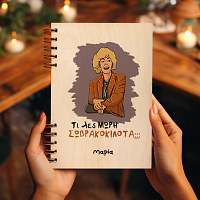 Τι λες μωρή
ΣΩΒΡΑΚΟΚΙΛΟΤΑ...
Μαρία